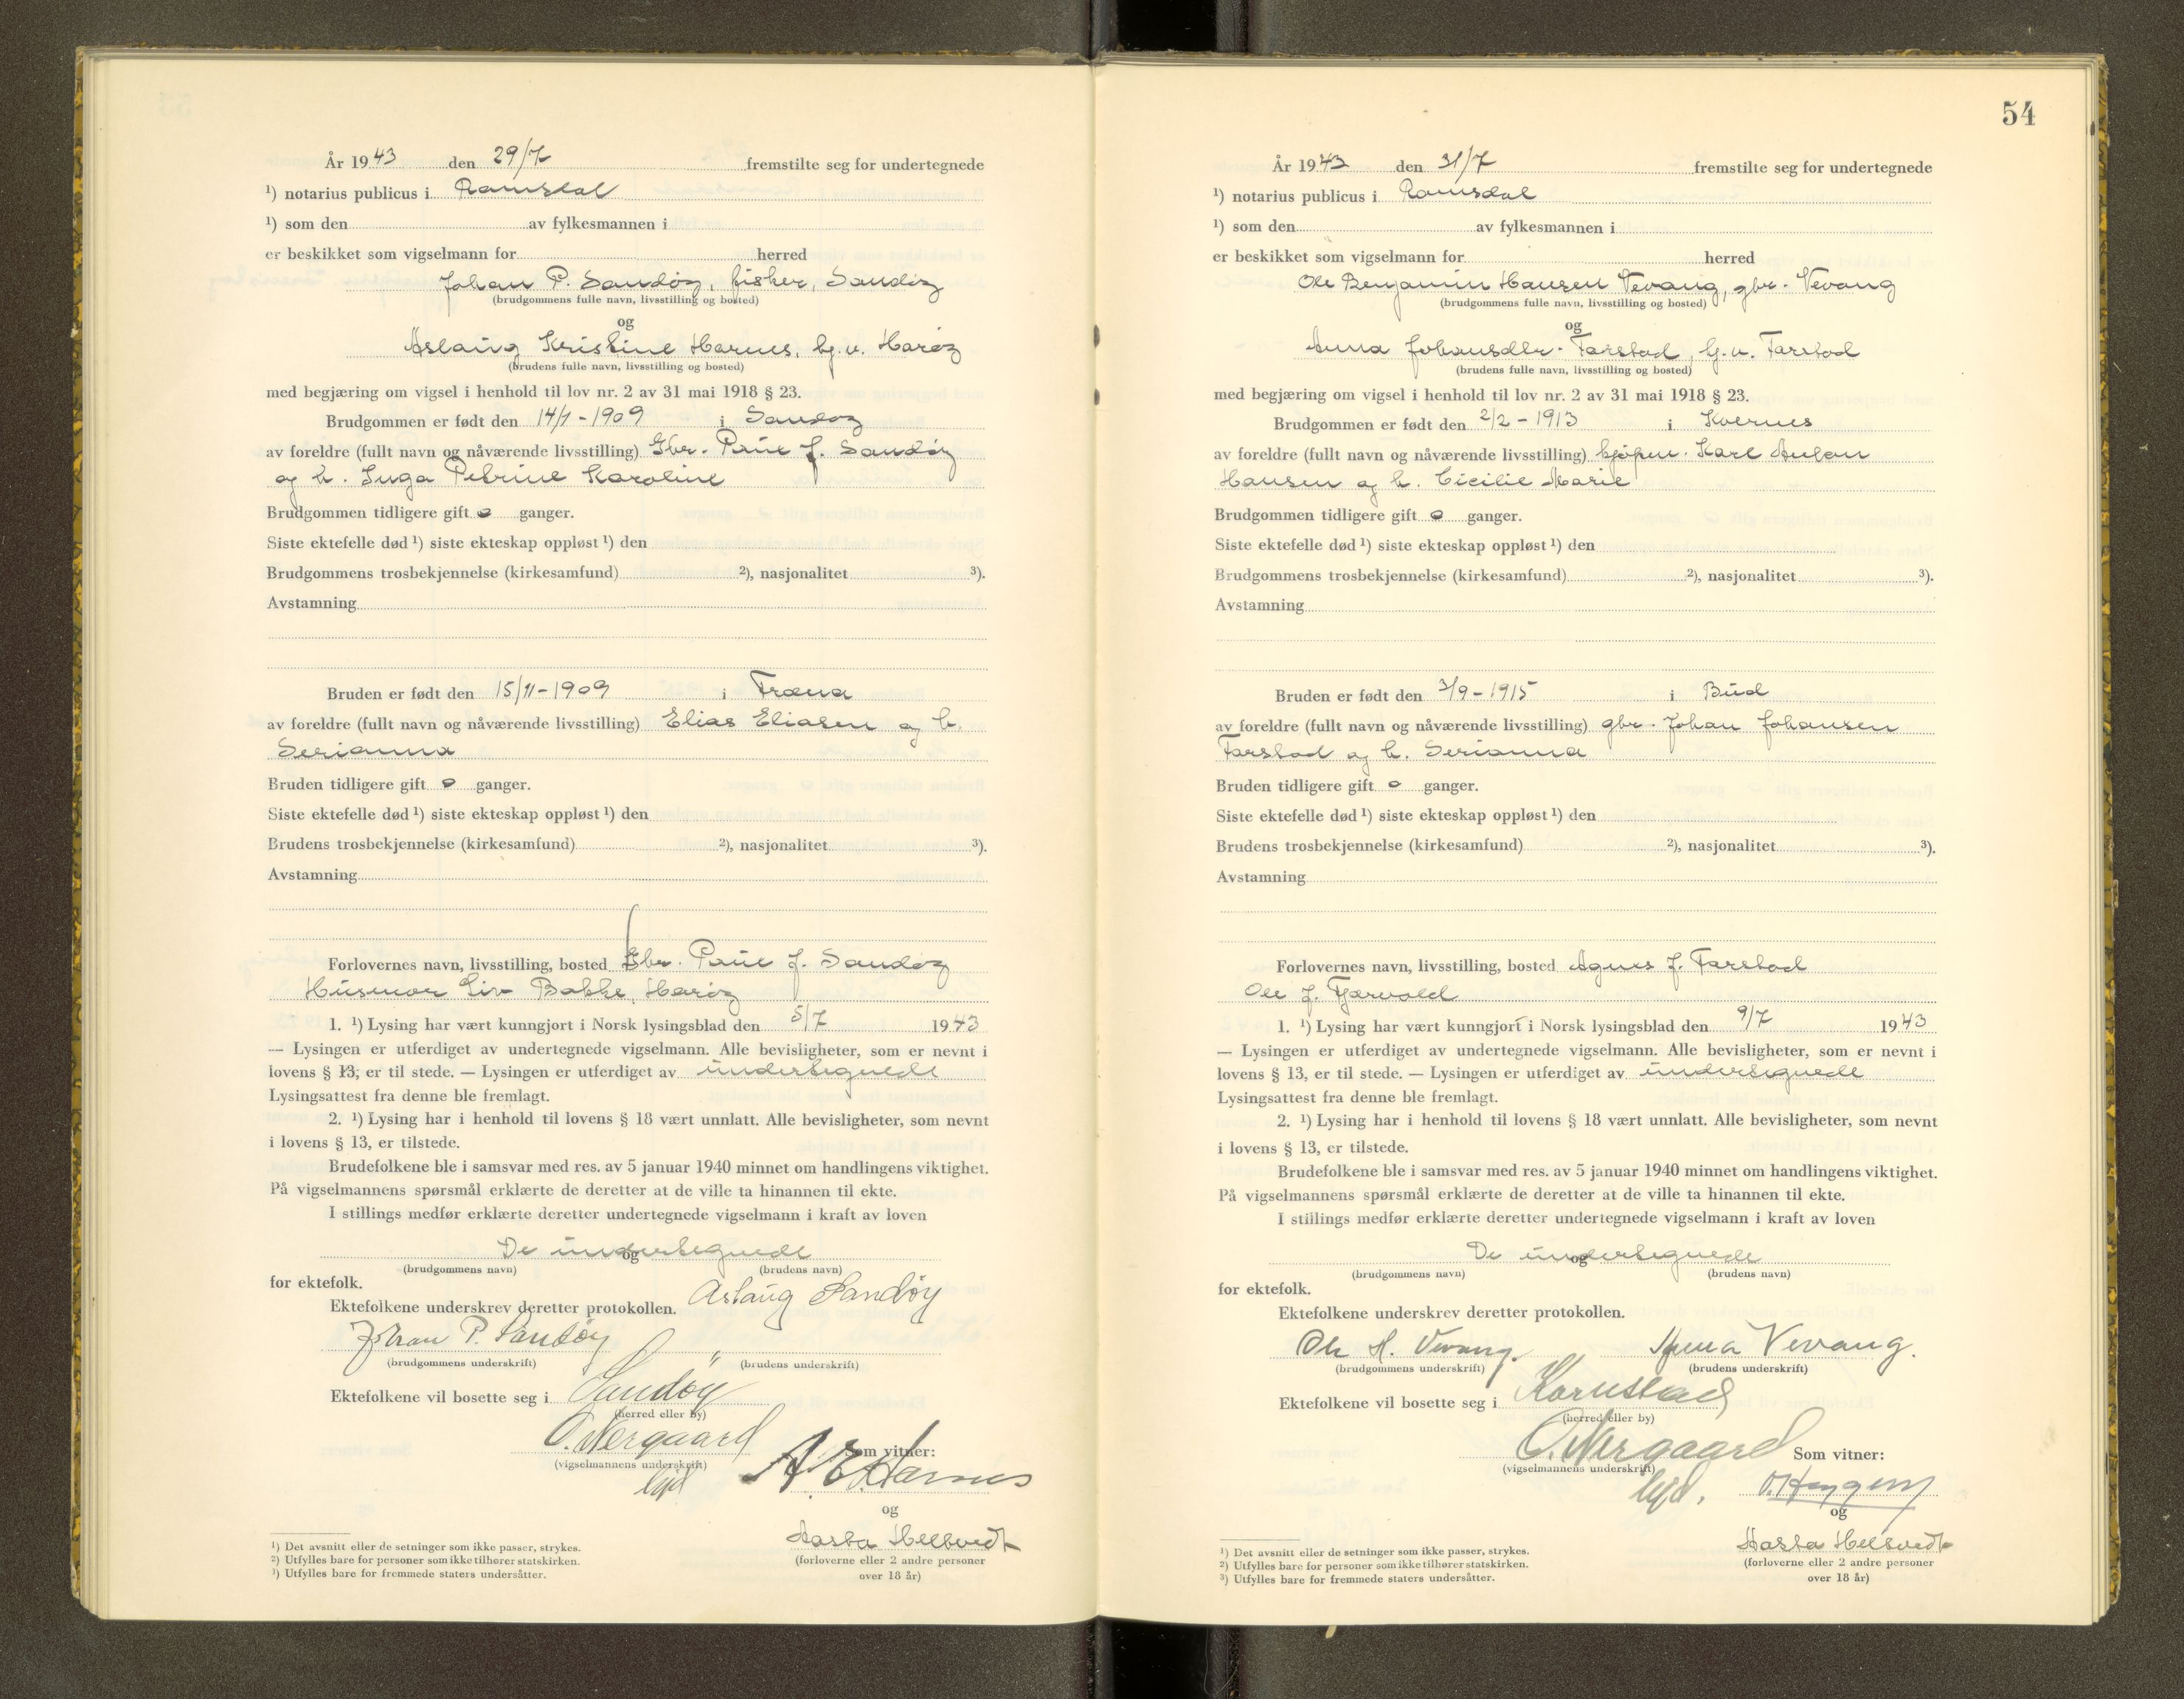 År 1943 den 29/7 fremstilte seg for undertegnede
¹) notarius publicus i Romsdal
¹) som den av fylkesmannen i
er beskikket som vigselmann for herred
Johan P. Sandøy, fisker, Sandøy
(brudgommens fulle navn, livsstilling og bosted)
og
Aslaug Kristine Harnes, hj.v. Harøy
(brudens fulle navn, livsstilling og bosted)
med begjæring om vigsel i henhold til lov nr. 2 av 31 mai 1918 § 23.
Brudgommen er født den 14/1-1909 i Sandøy
av foreldre (fullt navn og nåværende livsstilling) Gbr. Paul J. Sandøy
og h. Inga Petrine Karoline
Brudgommen tidligere gift 0 ganger.
Siste ektefelle død ¹) siste ekteskap oppløst ¹) den
Brudgommens trosbekjennelse (kirkesamfund) ²), nasjonalitet ³).
Avstamning
Bruden er født den 15/11-1909 i Fræna
av foreldre (fullt navn og nåværende livsstilling) Elias Eliasen og h.
Serianna
Bruden tidligere gift 0 ganger.
Siste ektefelle død ¹) siste ekteskap oppløst ¹) den
Brudens trosbekjennelse (kirkesamfund) ²), nasjonalitet ³).
Avstamning
Forlovernes navn, livsstilling, bosted Gbr. Paul J. Sandøy
Husmor Liv Bakke, Harøy
1. ¹) Lysing har vært kunngjort i Norsk lysingsblad den 5/7 1943
— Lysingen er utferdiget av undertegnede vigselmann. Alle bevisligheter, som er nevnt i
lovens § 13, er til stede. — Lysingen er utferdiget av undertegnede
Lysingsattest fra denne ble fremlagt.
2. ¹) Lysing har i henhold til lovens § 18 vært unnlatt. Alle bevisligheter, som nevnt
i lovens § 13, er tilstede.
Brudefolkene ble i samsvar med res. av 5 januar 1940 minnet om handlingens viktighet.
På vigselmannens spørsmål erklærte de deretter at de ville ta hinannen til ekte.
I stillings medfør erklærte deretter undertegnede vigselmann i kraft av loven
De undertegnede
og
(brudgommens navn) (brudens navn)
for ektefolk.
Ektefolkene underskrev deretter protokollen. Aslaug Sandøy
Johan P. Sandøy "
(brudgommens underskrift) (brudens underskrift)
Ektefolkene vil bosette seg i Sandøy
(herred eller by)
O. Nergaard
Som vitner:
(vigselmannens underskrift)
A. E. Harnes
og
Aasta Hellsvedt
(forloverne eller 2 andre personer
over 18 år)
¹) Det avsnitt eller de setninger som ikke passer, strykes.
²) Utfylles bare for personer som ikke tilhører statskirken.
³) Utfylles bare for fremmede staters undersåtter.
54
År 1943 den 31/7 fremstilte seg for undertegnede
¹) notarius publicus i Romsdal
¹) som den av fylkesmannen i
er beskikket som vigselmann for herred
Ole Benjamin Hansen Vevang, gbr. Vevang
(brudgommens fulle navn, livsstilling og bosted)
og
Anna Johansdtr. Farstad, hj.v. Farstad
(brudens fulle navn, livsstilling og bosted)
med begjæring om vigsel i henhold til lov nr. 2 av 31 mai 1918 § 23.
Brudgommen er født den 2/2-1913 i Kvernes
av foreldre (fullt navn og nåværende livsstilling) kjøpm. Karl Anton
Hansen og h. Cicilie Marie
Brudgommen tidligere gift 0 ganger.
Siste ektefelle død ¹) siste ekteskap oppløst ¹) den
Brudgommens trosbekjennelse (kirkesamfund) ²), nasjonalitet ³).
Avstamning
Bruden er født den 3/9-1915 i Bud
av foreldre (fullt navn og nåværende livsstilling) gbr. Johan Johansen
Farstad og h. Serianna
Bruden tidligere gift 0 ganger.
Siste ektefelle død ¹) siste ekteskap oppløst ¹) den
Brudens trosbekjennelse (kirkesamfund) ²), nasjonalitet ³).
Avstamning
Forlovernes navn, livsstilling, bosted Agnes J. Farstad
Ole J. Tjærvold
1. ¹) Lysing har vært kunngjort i Norsk lysingsblad den 9/7 1943
— Lysingen er utferdiget av undertegnede vigselmann. Alle bevisligheter, som er nevnt i
lovens § 13, er til stede. — Lysingen er utferdiget av undertegnede
Lysingsattest fra denne ble fremlagt.
2. ¹) Lysing har i henhold til lovens § 18 vært unnlatt. Alle bevisligheter, som nevnt
i lovens § 13, er tilstede.
Brudefolkene ble i samsvar med res. av 5 januar 1940 minnet om handlingens viktighet.
På vigselmannens spørsmål erklærte de deretter at de ville ta hinannen til ekte.
I stillings medfør erklærte deretter undertegnede vigselmann i kraft av loven
De undertegnede
og
(brudgommens navn) (brudens navn)
for ektefolk.
Ektefolkene underskrev deretter protokollen.
Ole H. Vevang. Anna Vevang.
(brudgommens underskrift) (brudens underskrift)
Ektefolkene vil bosette seg i Kornstad
(herred eller by)
O. Nergaard Som vitner:
(vigselmannens underskrift)
og
Aasta Hellsvedt
(forloverne eller 2 andre personer
over 18 år)
¹) Det avsnitt eller de setninger som ikke passer, strykes.
²) Utfylles bare for personer som ikke tilhører statskirken.
³) Utfylles bare for fremmede staters undersåtter.